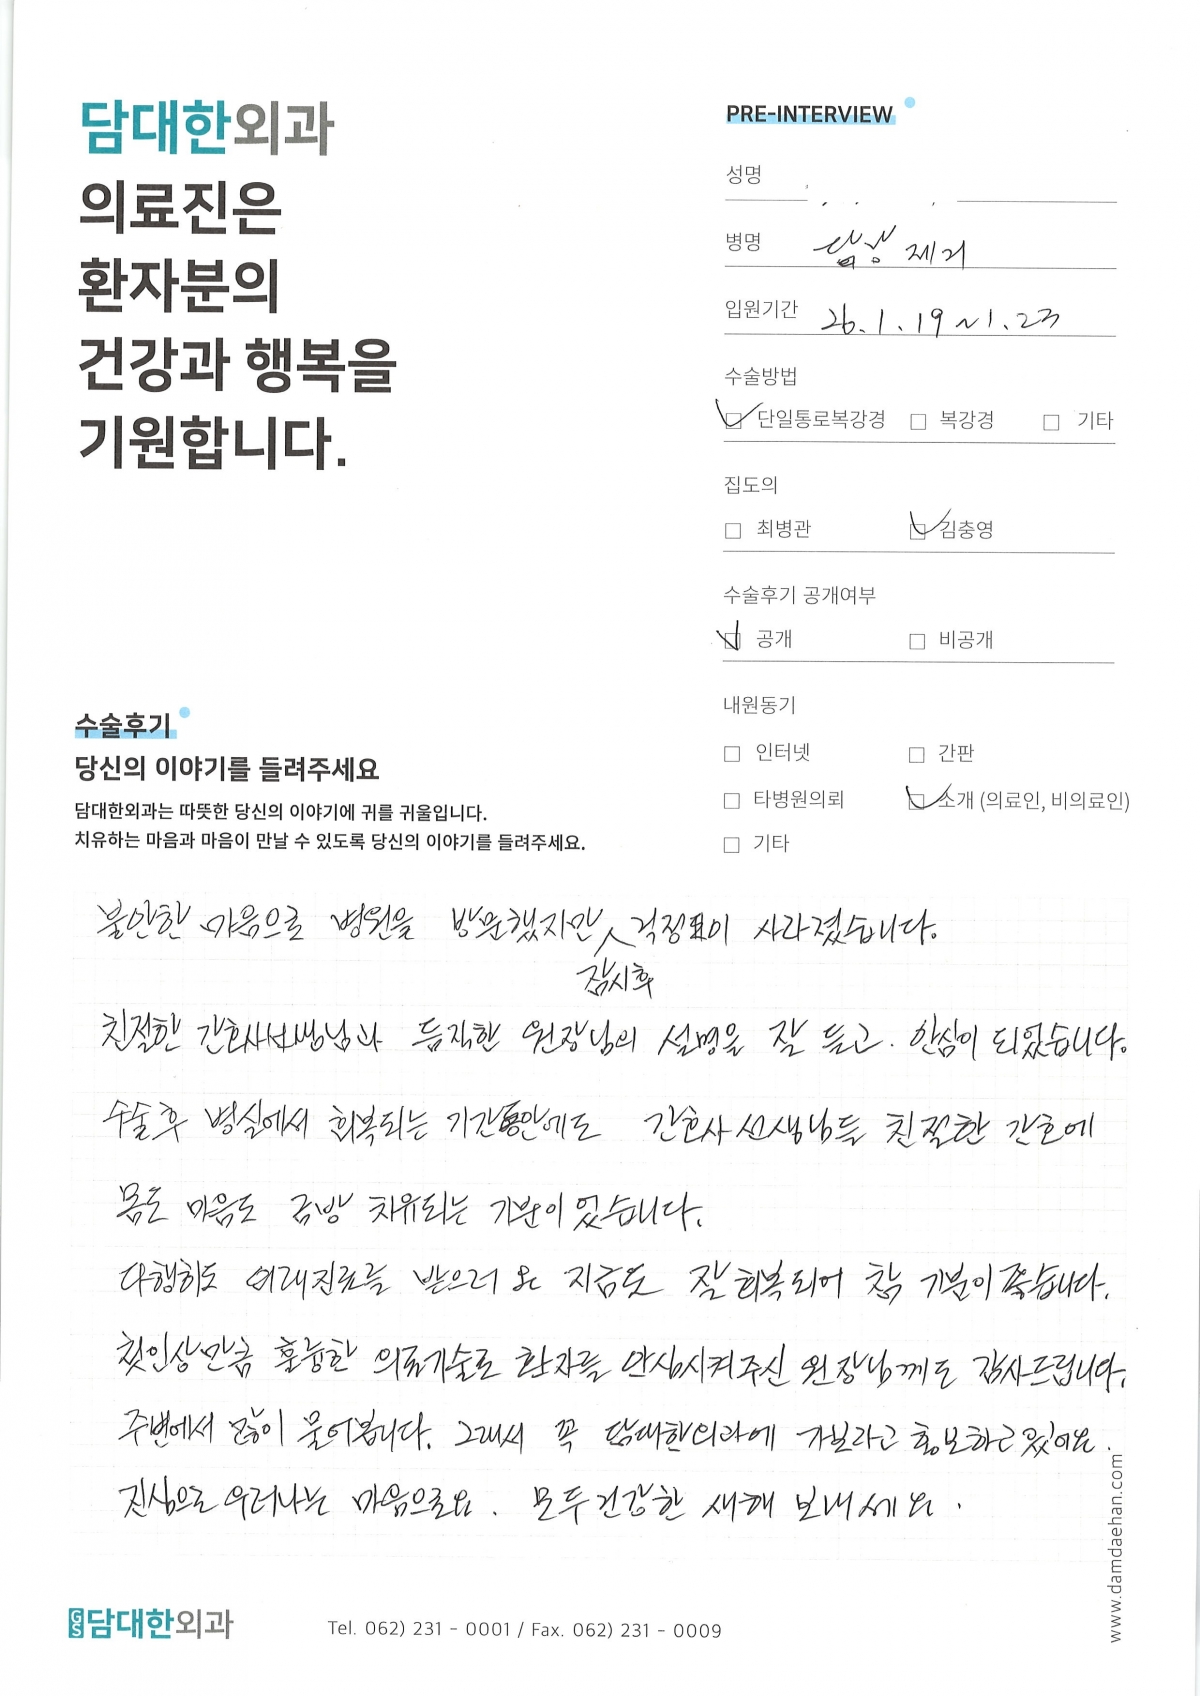 담대한외과
의료진은
환자분의
건강과 행복을
기원합니다.
PRE-INTERVIEW
성명
병명 담낭 제거
입원기간 26.1.19~1.23
수술방법
단일통로복강경 복강경 기타
집도의
최병관 김충영
수술후기 공개여부
공개 비공개
내원동기
인터넷 간판
타병원의뢰 소개 (의료인, 비의료인)
기타
수술후기
당신의 이야기를 들려주세요
담대한외과는 따뜻한 당신의 이야기에 귀를 귀울입니다.
치유하는 마음과 마음이 만날 수 있도록 당신의 이야기를 들려주세요.
불안한 마음으로 병원을 방문했지만 잠시후 걱정이 사라졌습니다.
친절한 간호사선생님과 듬직한 원장님의 설명을 잘 듣고. 안심이 되었습니다.
수술후 병실에서 회복되는 기간동안에도 간호사 선생님들 친절한 간호에
몸도 마음도 금방 치유되는 기분이었습니다.
다행히도 외래진료를 받으러 온 지금도 잘 회복되어 참 기분이 좋습니다.
첫인상만큼 훌륭한 의료기술로 환자를 안심시켜주신 원장님께도 감사드립니다.
주변에서 많이 물어봅니다. 그래서 꼭 담대한외과에 가보라고 홍보하고있어요.
진심으로 우러나는 마음으로요. 모두 건강한 새해 보내세요.
GS 담대한외과
Tel. 062) 231 - 0001 / Fax. 062) 231 - 0009
www.damdaehan.com